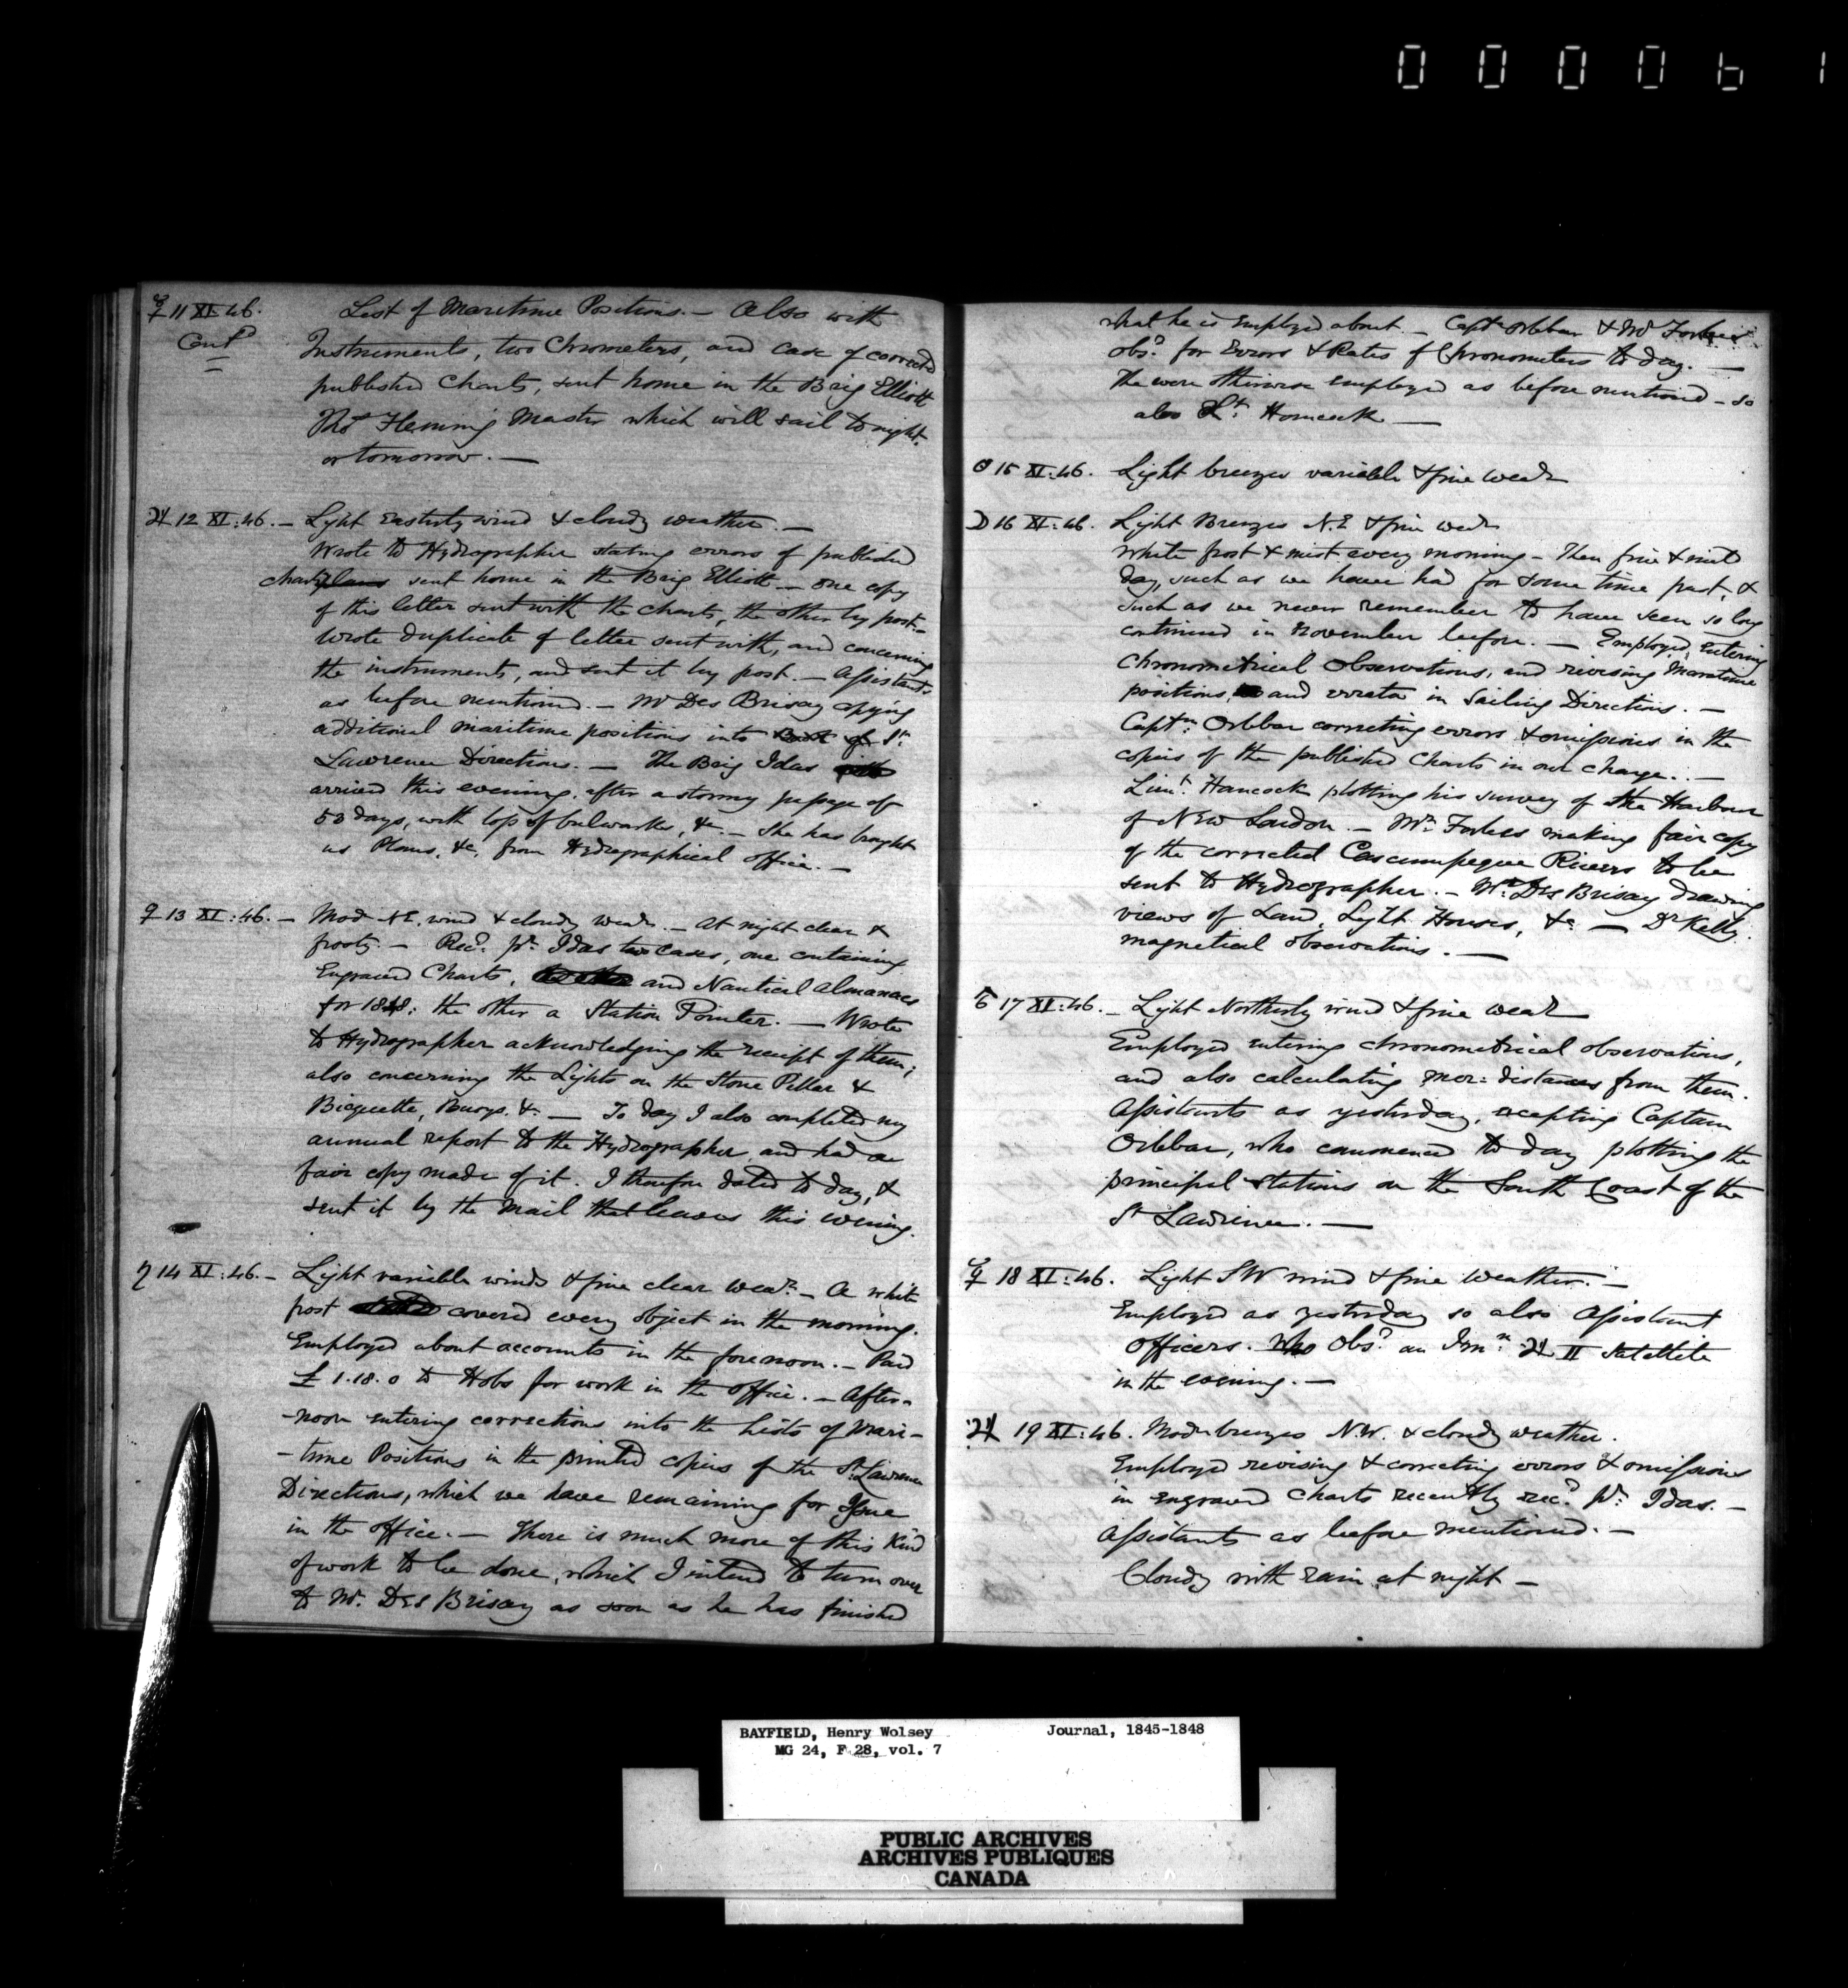 000061
☿ 11 XI. 46. List of Maritime Positions. — Also with
Cont.d Instruments, two Chrometers, and case of corrected
published Charts, sent home in the Brig Elliott
Thos Fleming Master which will sail to night
or tomorrow. —
♃ 12 XI: 46. — Light Easterly wind & cloudy weather. —
Wrote to Hydrographer stating errors of published
charts sent home in the Brig Elliott — one copy
of this letter sent with the charts, the other by post. —
Wrote duplicate of letter sent with, and concerning
the instruments, and sent it by post. — Assistants
as before mentioned. — Mr Des Brisay copying
additional maritime positions into St.
Lawrence Directions. — The Brig Idas
arrived this evening, after a stormy passage of
53 days, with loss of bulwarks, &c. — She has brought
us Plans, &c, from Hydrographical office. —
♀ 13 XI: 46. — Mod. NE. wind & cloudy wear. — At night clear &
frosty. — Recd. pr. Idas two cases, one containing
Engraved Charts, and Nautical Almanacs
for 1848; the other a Station Pointer. — Wrote
to Hydrographer acknowledging the receipt of them;
also concerning the Lights on the Stone Pillar &
Bicquette, Buoys. &c — To day I also completed my
annual report to the Hydrographer, and had a
fair copy made of it. I therefore dated to day, &
sent it by the Mail that leaves this evening.
♄ 14 XI: 46. — Light variable winds & fine clear wear. — A white
frost covered every object in the morning.
Employed about accounts in the forenoon. — Paid
£ 1.18.0 to Hobs for work in the office. — After-
-noon entering corrections into the Lists of Mari-
-time Positions in the printed copies of the St. Lawrence
Directions, which we have remaining for Issue
in the office. — There is much more of this kind
of work to be done, which I intend to turn over
to Mr. Des Brisay as soon as he has finished
what he is Employed about. — Captn Orlebar & Mr Forbes
obsd. for Errors & Rates of Chronometers to day. —
The were otherwise employed as before mentioned — so
also Lt. Hancock —
☉ 15 XI: 46. Light breezes variable & fine wear
☽ 16 XI: 46. Light Breezes N.E & fine wear
White frost & mist every morning — Then fine & mild
day, such as we have had for some time past, &
such as we never remember to have seen so long
continued in November before. — Employed, Entering
Chronometrical Observations, and revising Maritime
positions, and errata in Sailing Directions. —
Captn: Orlebar correcting errors & omissions in the
copies of the published Charts in our charge. —
Lieut. Hancock plotting his survey of the Harbour
of New London. — Mr. Forbes making fair copy
of the corrected Cascumpeque Rivers to be
sent to Hydrographer. — Mr. Des Brisay drawing
views of Land, Light Houses, &c — Dr Kelly.
magnetical observations. —
♂ 17 XI: 46. — Light Northerly wind & fine wear
Employed entering chronometrical observations,
and also calculating mer: distances from them.
Assistants as yesterday, excepting Captain
Orlebar, who commenced to day plotting the
principal stations on the South Coast of the
St Lawrence. —
☿ 18 XI: 46. Light SW wind & fine weather. —
Employed as yesterday so also Assistant
officers. Who Obsd. an Imn. ♃ II Satellite
in the evening. —
♃ 19 XI: 46. Modr breezes N.W. & cloudy weather.
Employed revising & correcting errors & omissions
in engraved Charts recently recd. pr. Idas. —
Assistants as before mentioned. —
Cloudy with rain at night —
BAYFIELD, Henry Wolsey Journal, 1845-1848
MG 24, F 28, vol. 7
PUBLIC ARCHIVES
ARCHIVES PUBLIQUES
CANADA